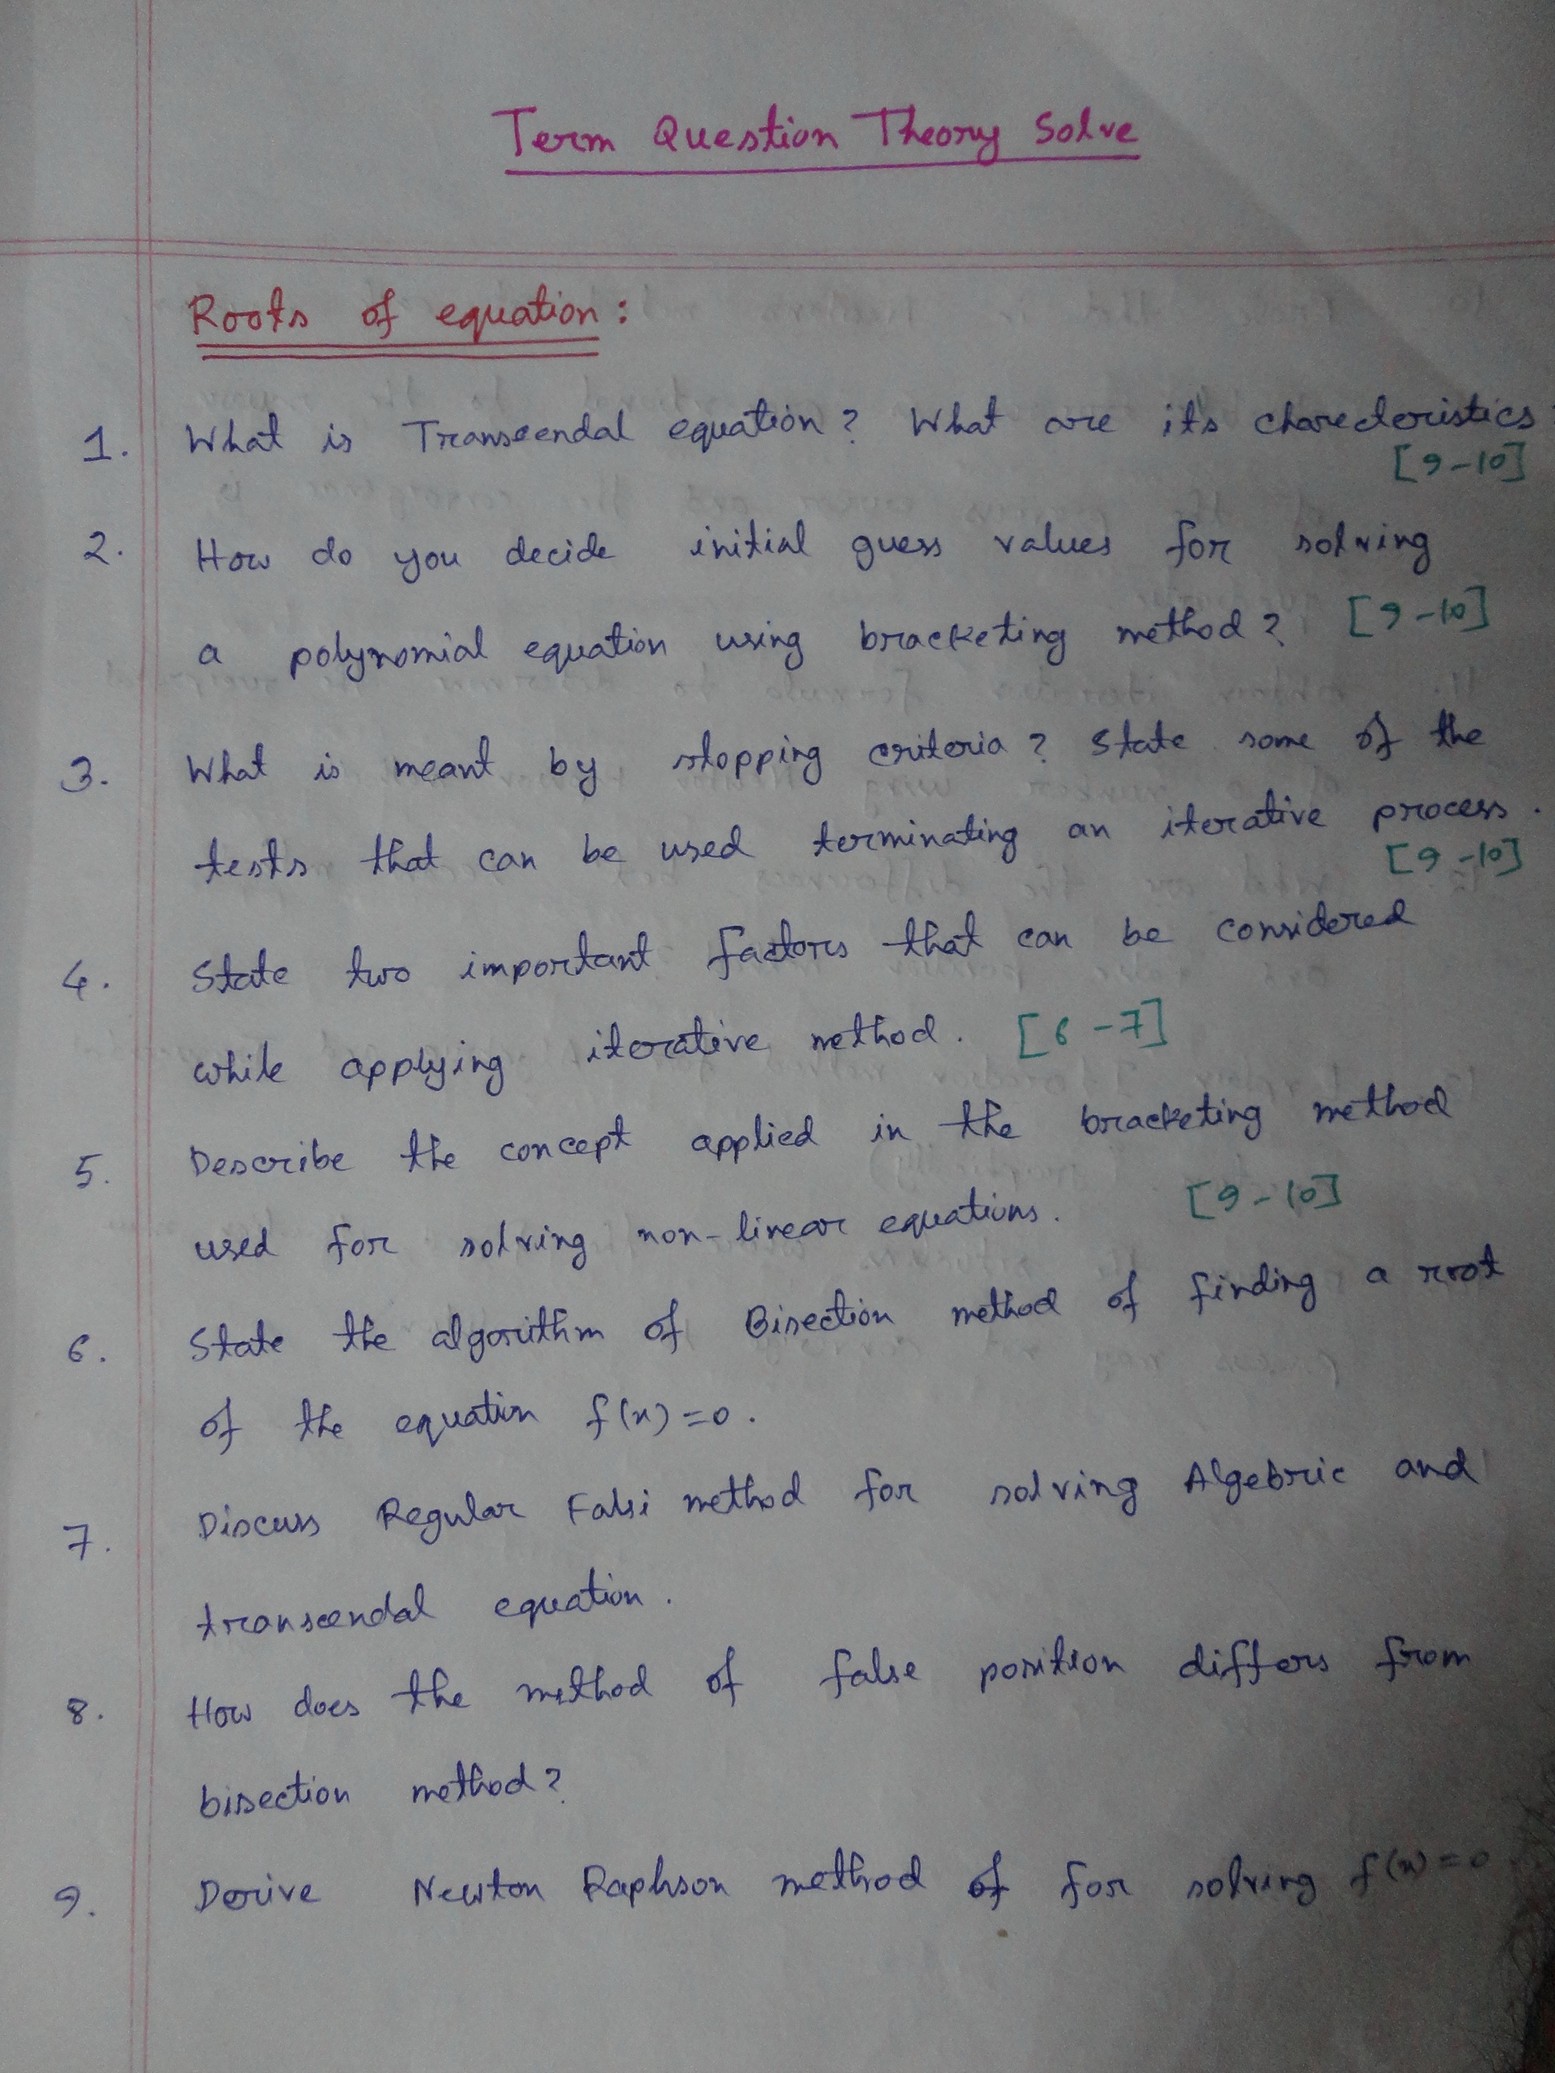 Term Question Theory Solve
Roots of equation:
1. What is Transcendal equation? What are its charecteristics
[9-10]
2. How do you decide initial guess values for solving
a polynomial equation using bracketing method? [9-10]
3. What is meant by stopping criteria? State some of the
tests that can be used terminating an iterative process.
[9-10]
4. State two important factors that can be considered
while applying iterative method. [6-7]
5. Describe the concept applied in the bracketing method
used for solving non-linear equations. [9-10]
6. State the algorithm of Bisection method of finding a root
of the equation f(x)=0.
7. Discuss Regular Falsi method for solving Algebric and
transcendal equation.
8. How does the method of false position differs from
bisection method?
9. Derive Newton Raphson method of for solving f(x)=0